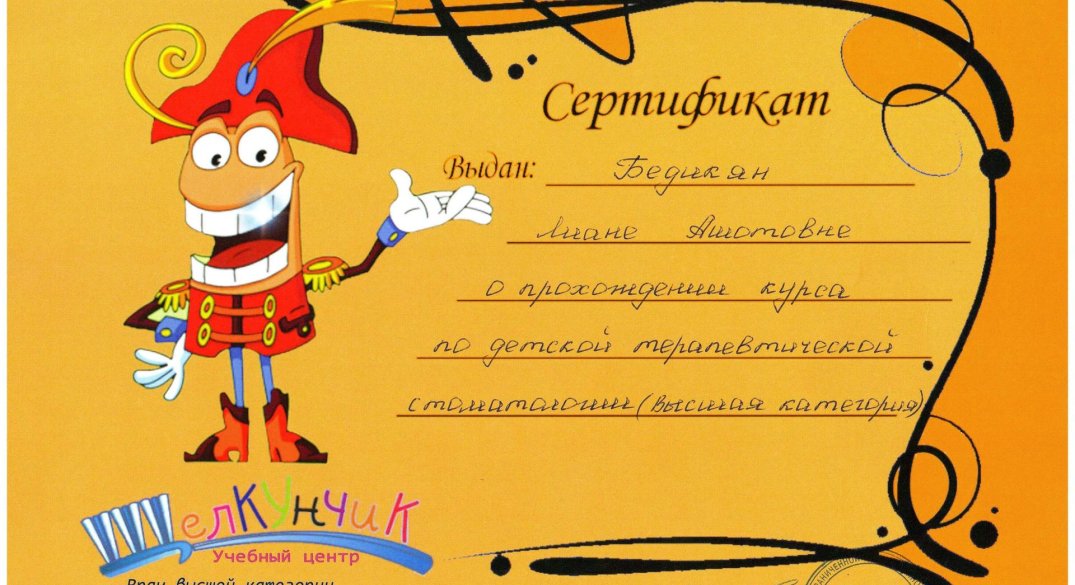 Сертификат
Выдан: Бедикян
Лиане Ашотовне
о прохождении курса
по детской терапевтической
стоматологии (высшая категория)
Щелкунчик
Учебный центр
Врач высшей категории